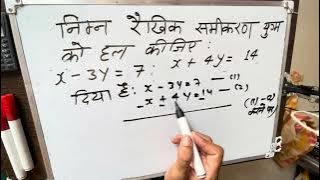 निम्न रैखिक समीकरण युग्म
को हल कीजिए :
x - 3y = 7 ; x + 4y = 14
दिया है : x - 3y = 7 — (1)
- x + 4y = 14 — (2)
(1) - (2)
करने पर